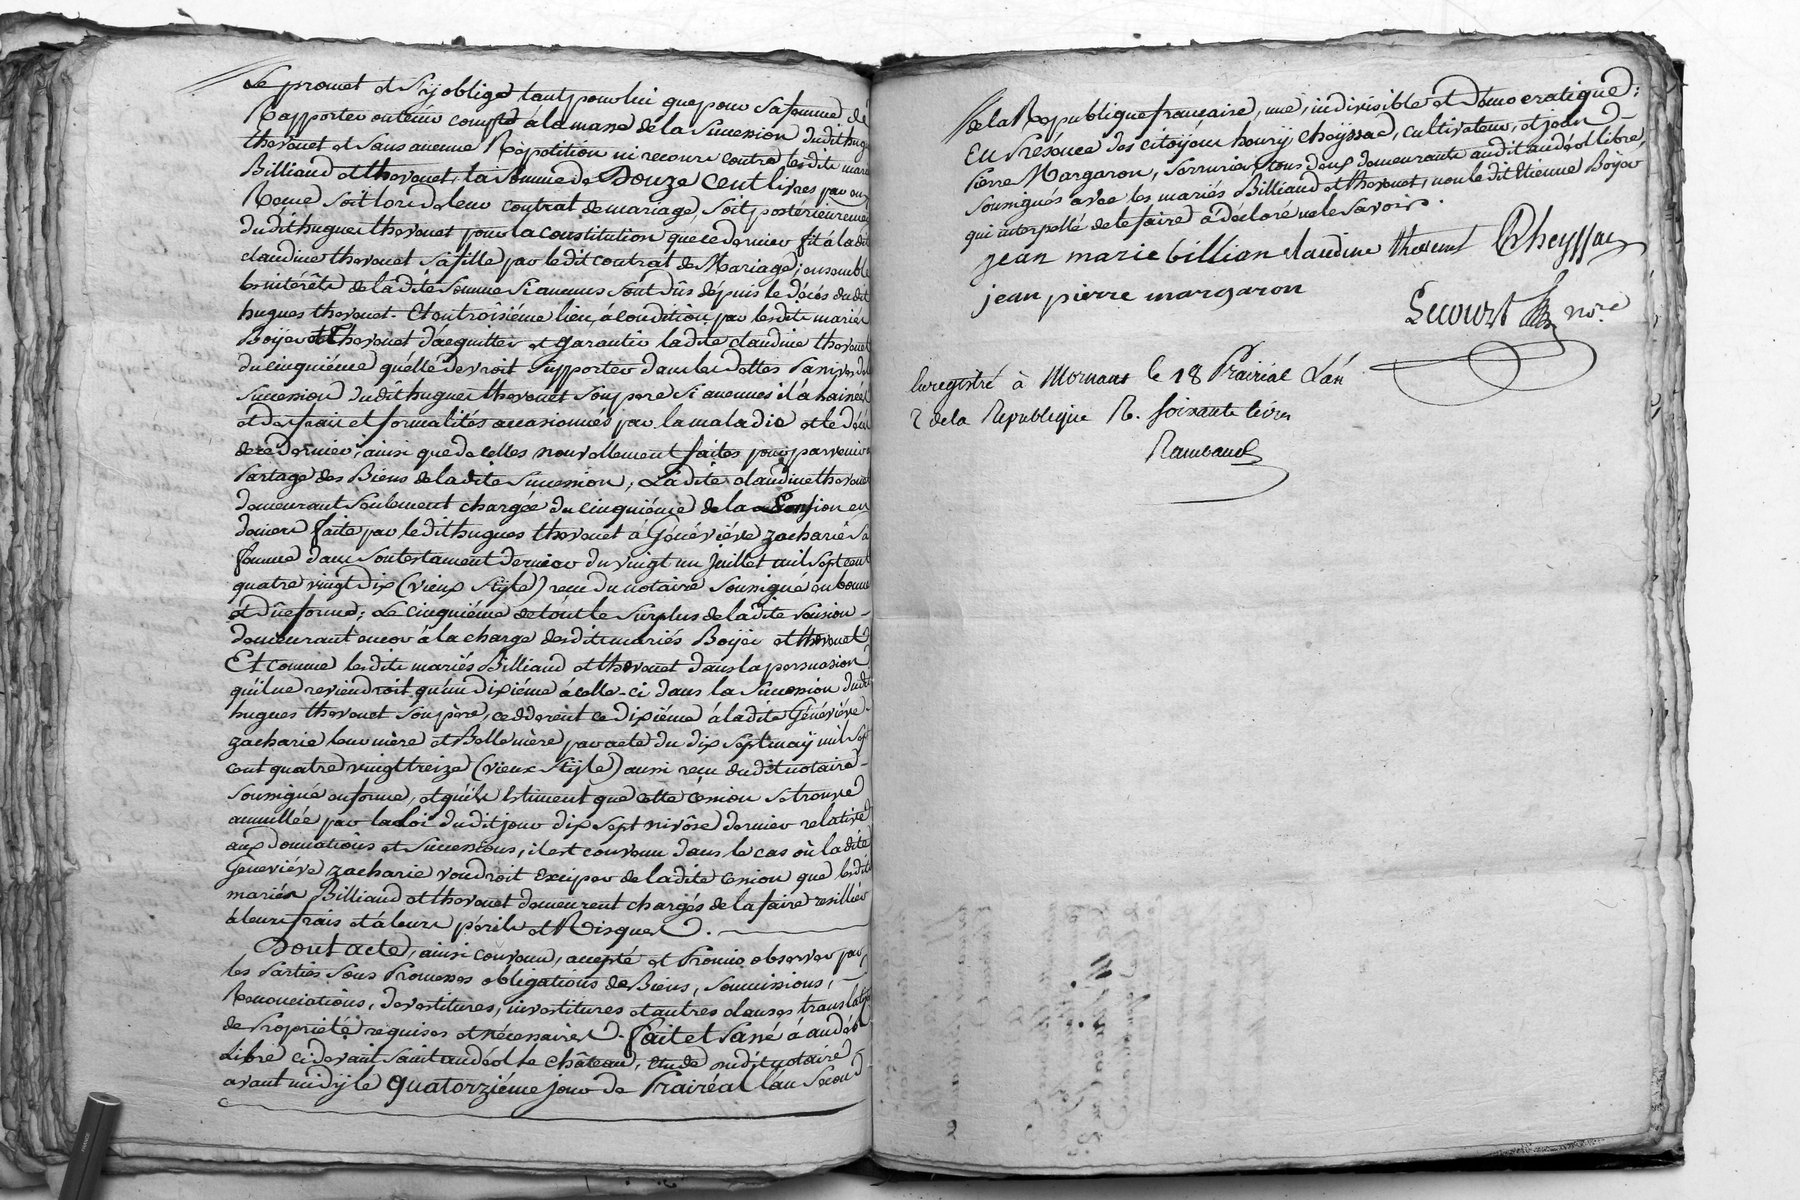 Se promet et s'y oblige tant pour lui que pour sa femme de
Rapporter ou tenir compte à la masse de la Succession dudit hugues
thevenet et sans aucune Répétition ni recours contre lesdits mariés
Billiaud et thevenet, la Somme de Douze Cent livres par eux
Reçue soit lors de leur contrat de mariage, soit postérieurement
dudit hugues thevenet pour la constitution que ce dernier fit à ladite
claudine thevenet sa fille par ledit contrat de Mariage; ensemble
les intérêts de ladite Somme si aucuns sont dûs depuis le décès dudit
hugues thevenet. Et en troisième lieu, à condition par lesdits mariés
Boyer et Thevenet d'acquitter et garantir ladite claudine thevenet
du cinquième qu'elle devroit supporter dans les dettes passives de la
succession dudit hugues thevenet son père si aucunes il a laissé,
et des frais et formalités occasionnés par la maladie et le décès
de ce dernier, ainsi que de celles nouvellement faites pour parvenir au
Partage des Biens de ladite succession, Ladite claudine thevenet
demeurant seulement chargée du cinquième de la Pension en
faite par ledit hugues thevenet à Géneviève zacharie sa
femme dans son testament dernier du vingt un juillet mil sept cent
quatre vingt dix (vieux style) reçu du notaire soussigné en bonne
et dûe forme; Le cinquième de tout le surplus de ladite Pension
demeurant encor à la charge desdits mariés Boyer et thevenet
Et comme lesdits mariés Billiaud et thevenet dans la persuasion
qu'il ne reviendroit qu'un dixième à celle-ci dans la succession dudit
hugues thevenet son père, cedderent ce dixième à ladite Généviève
zacharie leur mère et Belle mère par acte du dix sept may mil sept
cent quatre vingt treize (vieux style) aussi reçu dudit notaire
soussigné en forme, et qu'ils Estiment que cette cession se trouve
annullée par la Loi dudit jour dix sept nivôse dernier relative
aux donnations et successions, il est convenu dans le cas où ladite
Géneviève zacharie voudroit Exciper de ladite cession que lesdits
mariés Billiaud et thevenet demeurent chargés de la faire resillier
à leurs frais et à leurs périls et Risques.
Dont acte, ainsi convenu, accepté et Promis observer par
les Parties sous Promesses obligations de Biens, soumissions,
Renonciations, devestitures, investitures et autres clauses translatives
de Propriété requises et nécessaires. fait et Passé à andéol
Libre ci devant saint andéol le château, étude dudit notaire
avant midy le quatorzième jour de Prairéal l'an Second
de la République francaise, une, indivisible et Démocratique;
En Présence des citoyens henry cheyssac, cultivateur, et jean
Pierre Margaron, serrurier, tous deux demeurants audit andéol libre,
soussignés avec les mariés Billiaud et thevenet, non ledit Etienne Boyer
qui interpellé de le faire à déclaré ne le savoir.
jean marie billian claudine thevenet Cheyssac
jean pierre margaron
Lecourt nre
Enregistré à Mornant le 18 Prairial L'an
2 de la République R. soixante livres
Rambaud